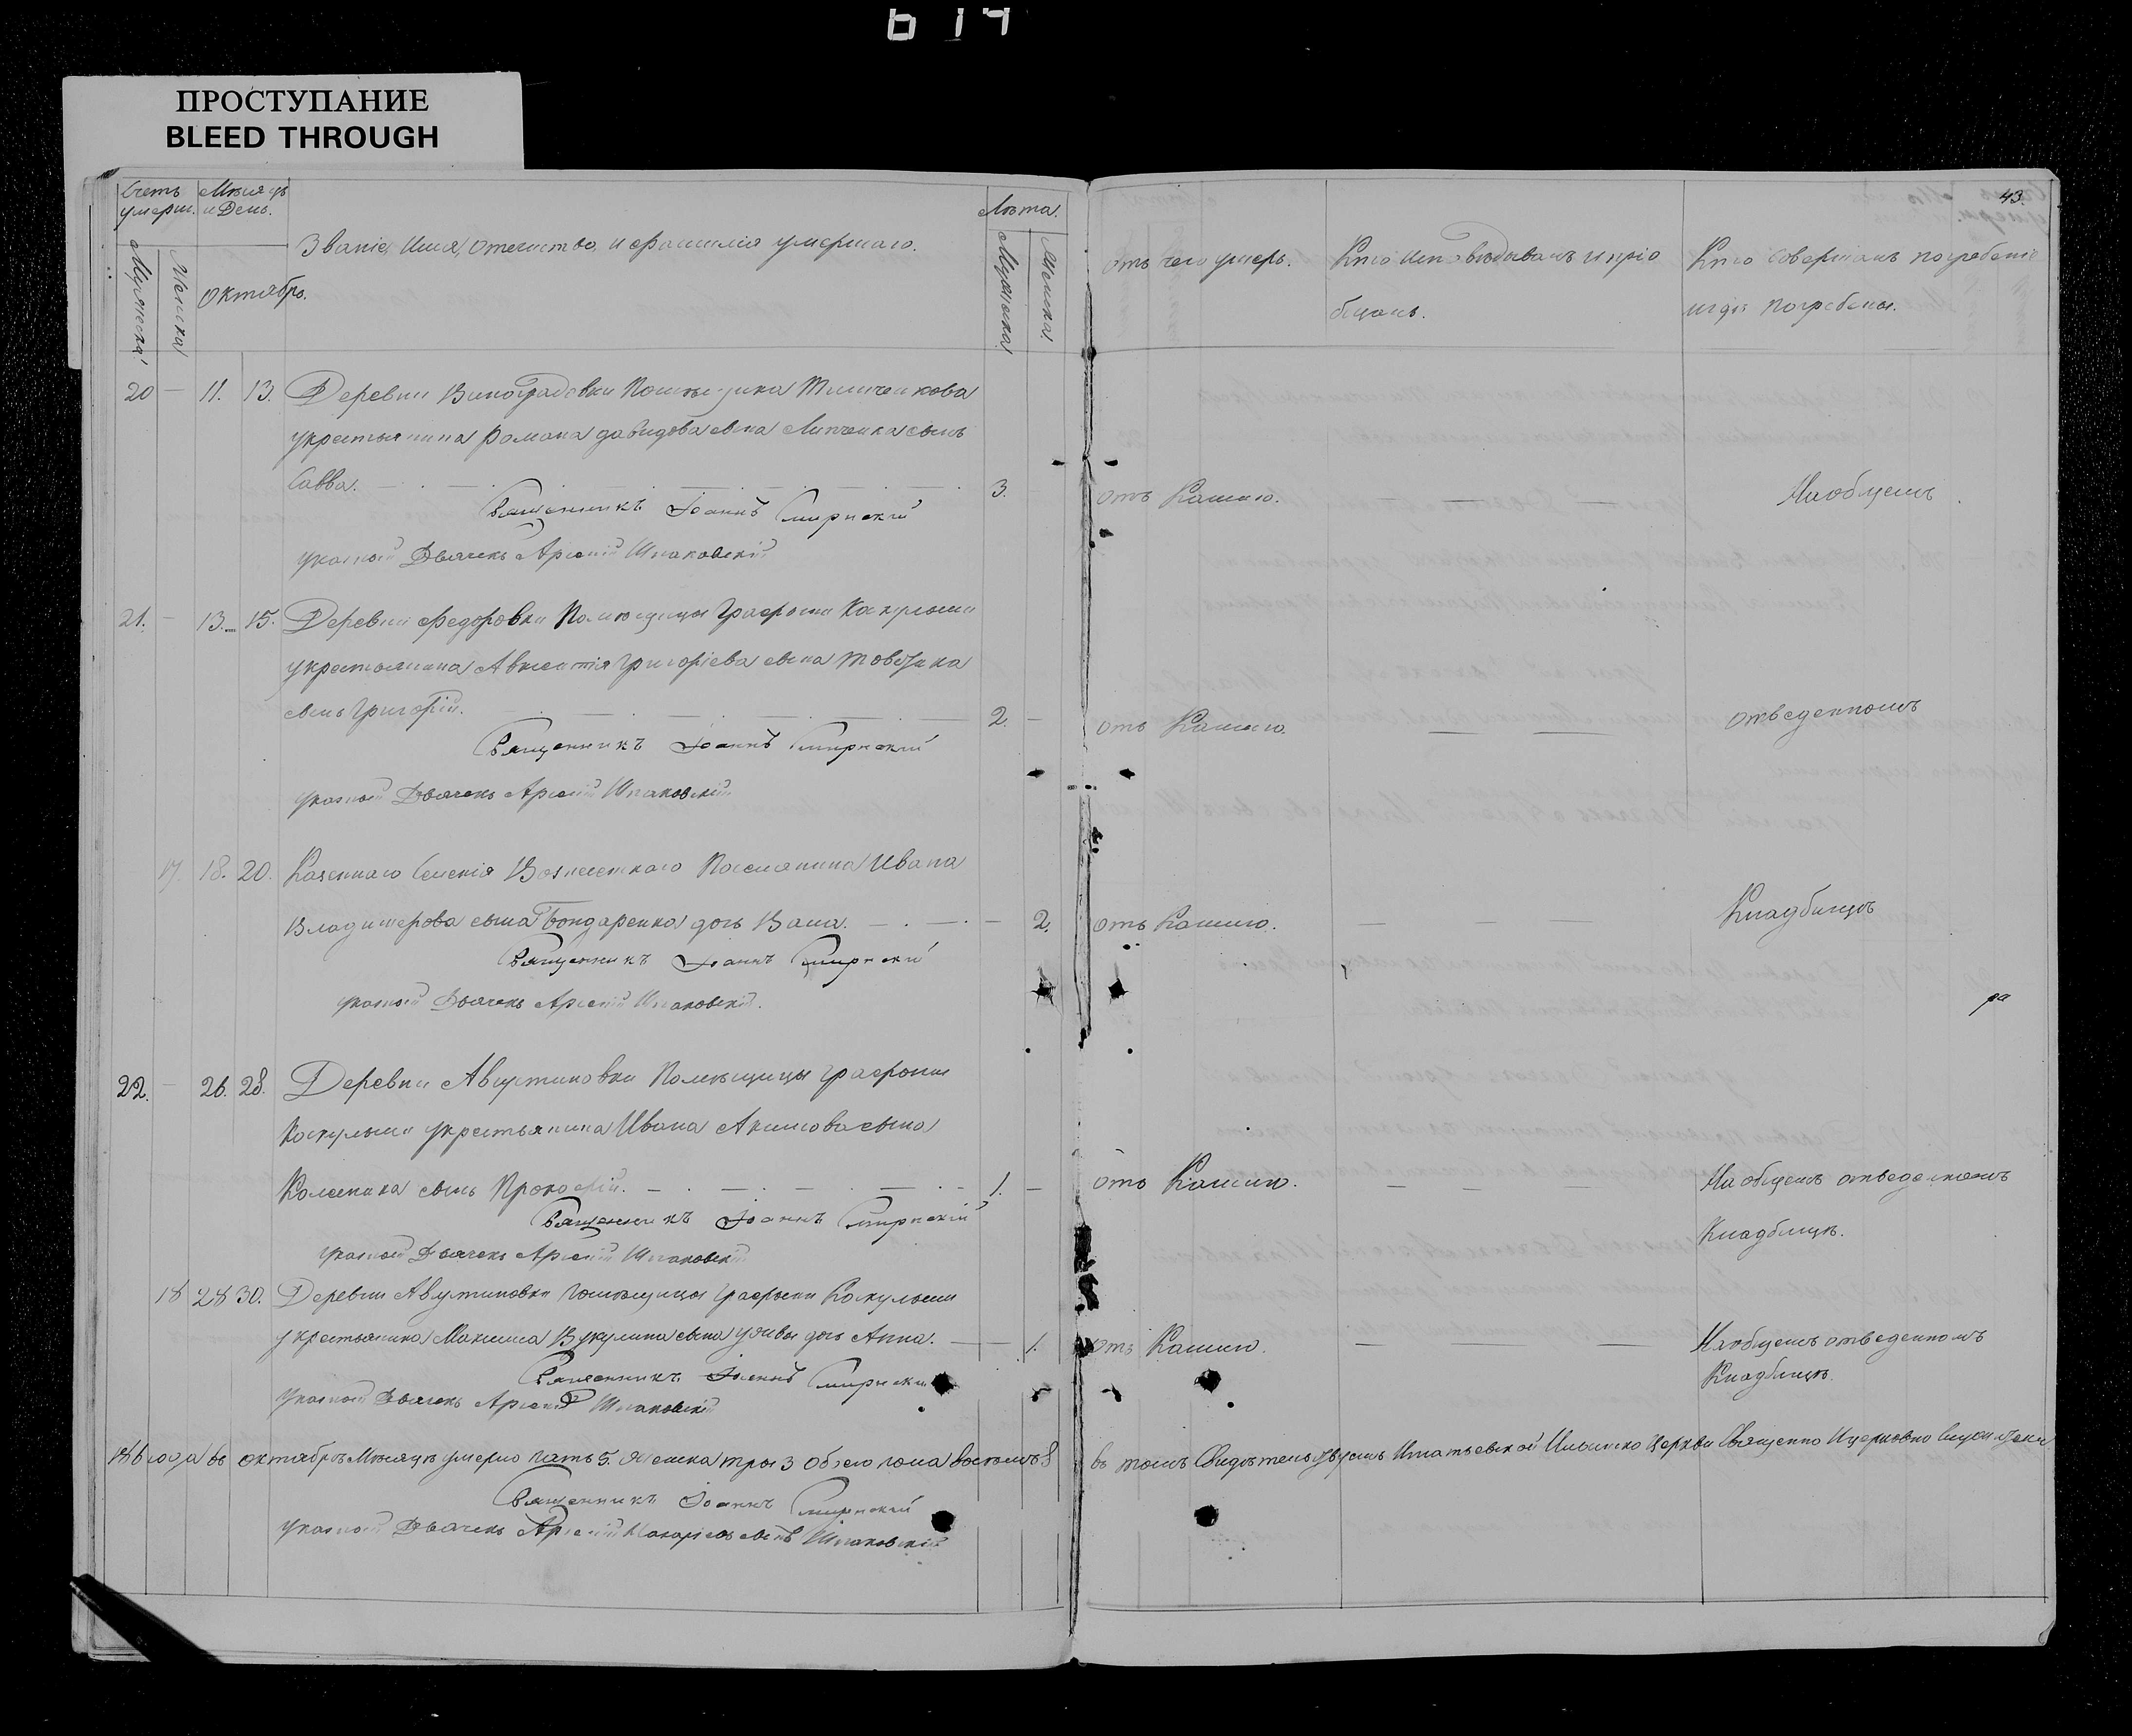 614
ПРОСТУПАНИЕ
BLEED THROUGH
43.
Счетъ умерш.
Мѣсяцъ и День.
Званіе, Имя, Отечество, и фамилія умершаго.
Лѣта.
Мужеска
Женска
Октябрь.
Мужеска
Женска
отъ чего умеръ.
Кто исповѣдывалъ и прiо
бщалъ.
Кто совершалъ погребеніе
и где погребены.
20 — 11. 13. Деревни Виноградовки Помѣщика
крестьянина Романа Давидова сына сынъ
Савва. 3. отъ Кашлю. На общемъ
Священникъ Іоаннъ Смирнскій
указный Дьячекъ Арсеній Шпаковскій
21. — 13. 15. Деревни Федоровки Помѣщицы Графини
крестьянина Авксентія Григоріева сына
сынъ Григорій. 2. — отъ Кашлю. отведенномъ
Священникъ Іоаннъ Смирнскій
указный Дьячекъ Арсеній Шпаковскій
17. 18. 20. Казеннаго Селенія Вознесенскаго Поселянина Ивана
Владимерова сына Бондаренка дочь 2. отъ Кашлю. Кладбищѣ
Священникъ Іоаннъ Смирнскій
указный Дьячекъ Арсеній Шпаковскій.
22. — 26. 28. Деревни Августиновки Помѣщицы Графини
крестьянина Ивана Акимова сына
Колесника сынъ Прокофій. 1. — отъ Кашлю. На общемъ отведенномъ
Кладбищѣ.
Священникъ Іоаннъ Смирнскій
указный Дьячекъ Арсеній Шпаковскій
18 28 30. Деревни Августиновки помѣщицы Графини
крестьянина Максима сына дочь Анна. 1. отъ Кашлю. На общемъ отведенномъ
Кладбищѣ.
Священникъ Іоаннъ Смирнскій
Указный Дьячекъ Арсеній Шпаковскій
года въ октябрѣ Мѣсяцѣ умерло пять 5. женска три 3 обоего пола восемь 8 въ томъ Свидѣтельствуемъ Игнатьевской Церкви Священно и церковно служители
Священникъ Іоаннъ Смирнскій
указный Дьячекъ Арсеній сынъ Шпаковскій